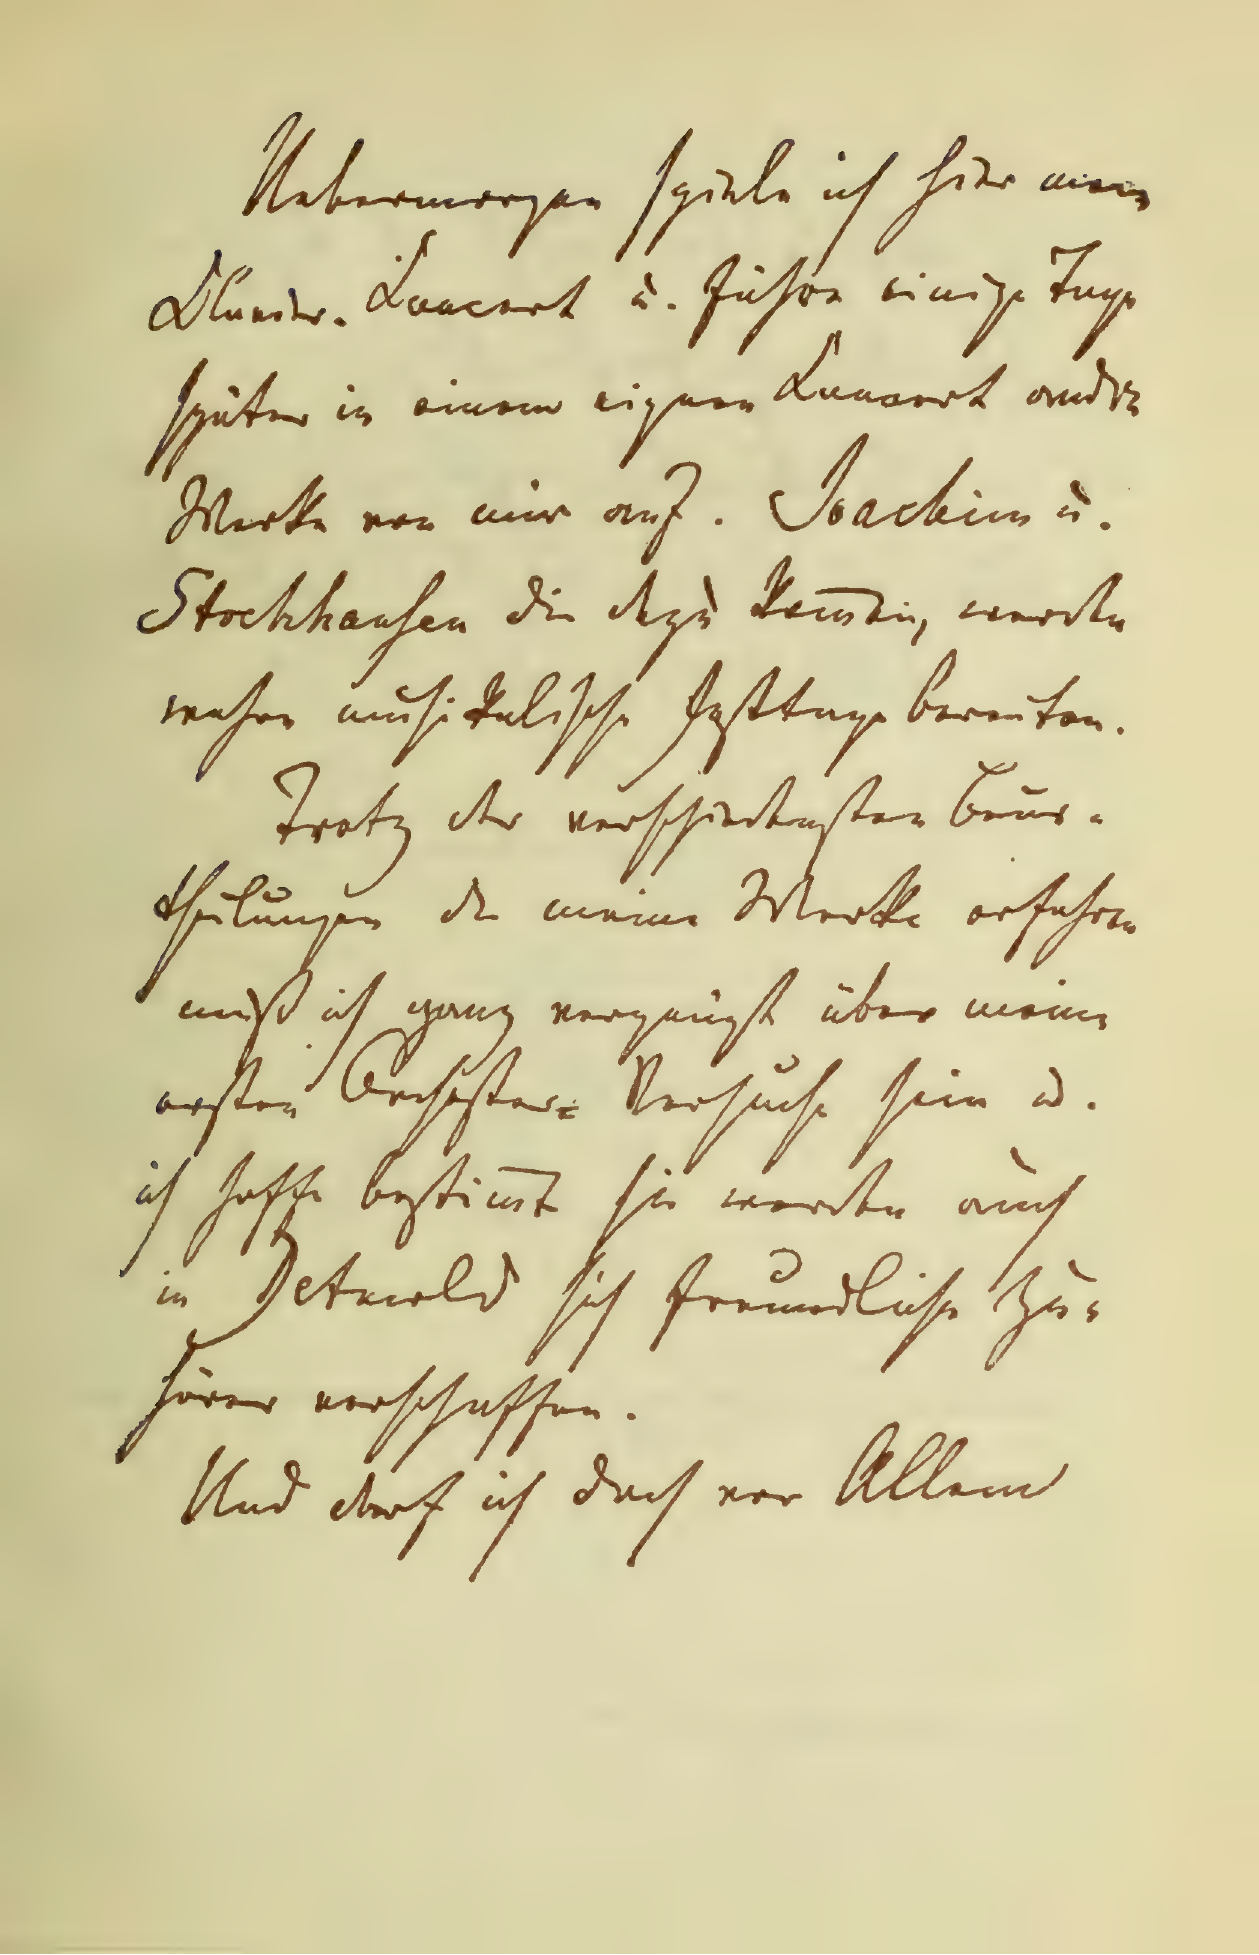 Uebermorgen spiele ich hier mein
Clavier-Concert u. führe einige Tage
später in einem eignen Concert andre
Werke von mir auf. Joachim u.
Stockhausen die dazu kom̅en, werden
wahre musikalische Festtage bereiten.
Trotz der verschiedensten Beur-
theilungen die meine Werke erfahren
muß ich ganz vergnügt über meine
ersten Orchester-Versuche sein u.
ich hoffe bestim̅t sie werden auch
in Detmold sich freundliche Zu-
hörer verschaffen.
Und darf ich doch vor Allem